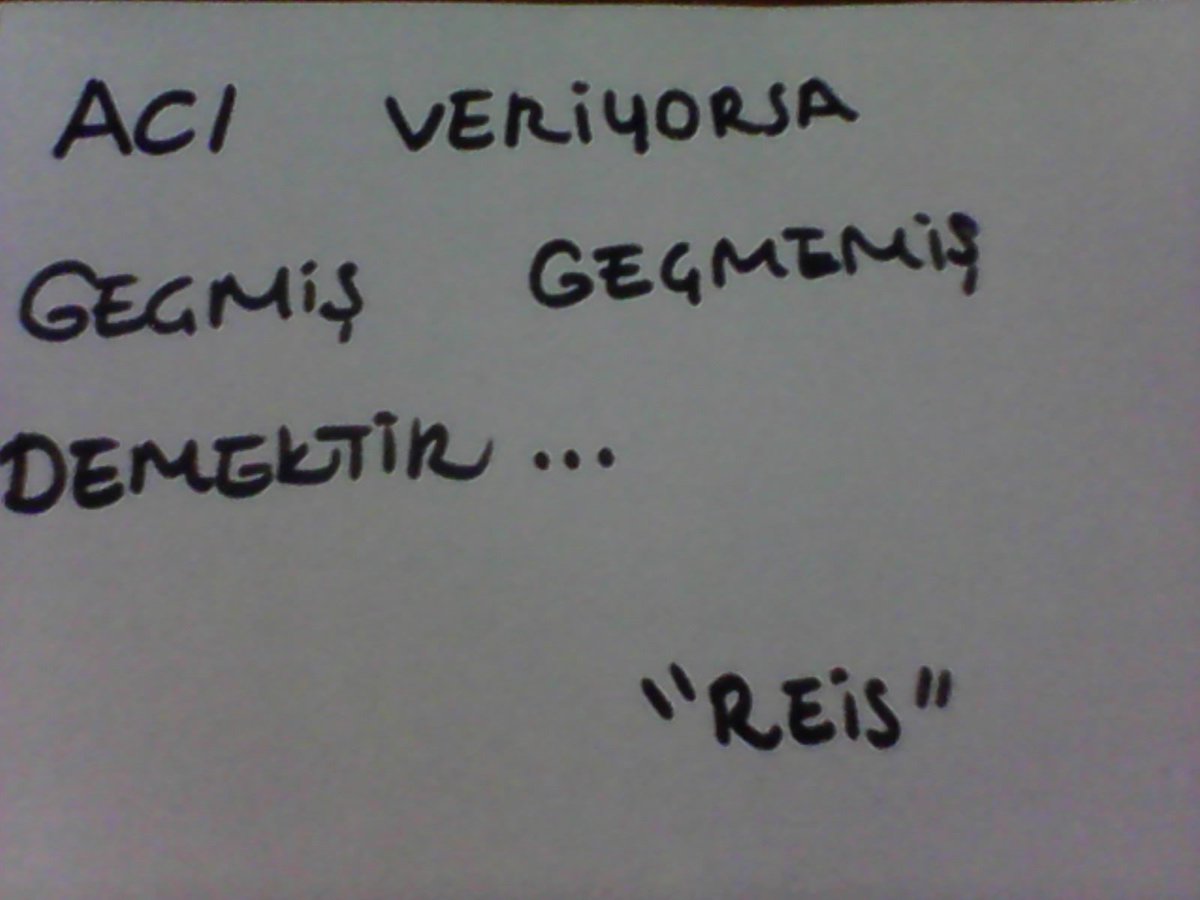 ACI VERİYORSA
GEÇMİŞ GEÇMEMİŞ
DEMEKTİR...
"REİS"